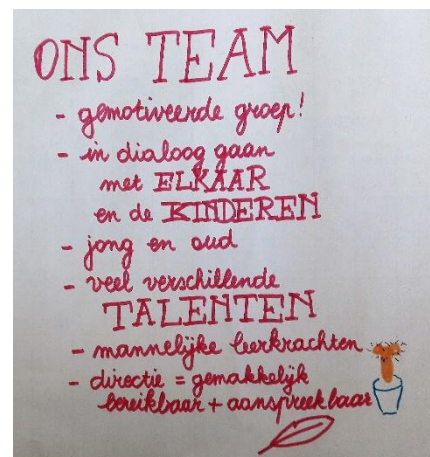 ONS TEAM
- gemotiveerde groep!
- in dialoog gaan
met ELKAAR
en de KINDEREN
- jong en oud
- veel verschillende
TALENTEN
- mannelijke leerkrachten
- directie = gemakkelijk
bereikbaar + aanspreekbaar